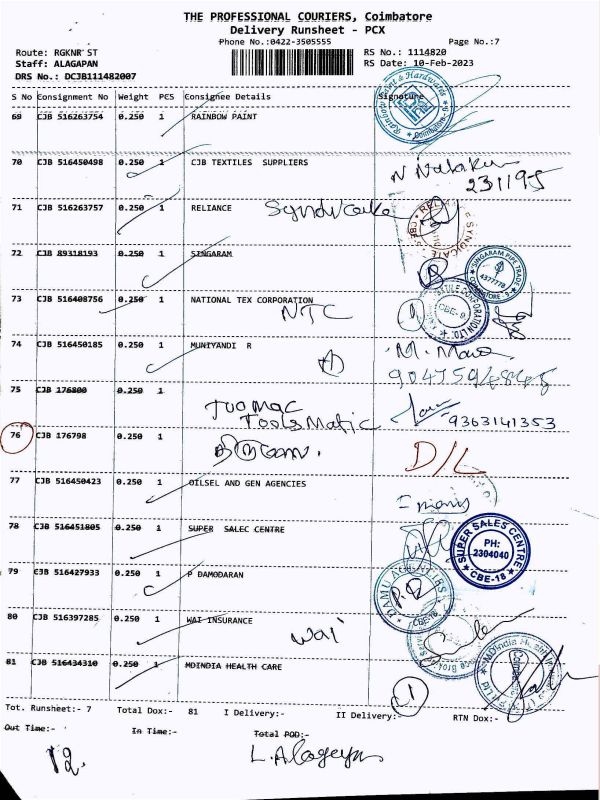 THE PROFESSIONAL COURIERS, Coimbatore
Delivery Runsheet - PCX
Phone No.:0422-3505555
Page No.:7
Route: RGKNR ST
RS No.: 1114820
Staff: ALAGAPAN
RS Date: 10-Feb-2023
DRS No.: DCJB111482007
S No Consignment No Weight PCS Consignee Details Signature
69 CJB 516263754 0.250 1 RAINBOW PAINT
Rainbow Paint & Hardwares
Coimbatore-9
70 CJB 516450498 0.250 1 CJB TEXTILES SUPPLIERS
231195
71 CJB 516263757 0.250 1 RELIANCE
Syndicate
72 CJB 89318193 0.250 1 SINGARAM
SINGARAM PIPE TRADE
4377778
COIMBATORE - 9
73 CJB 516408756 0.250 1 NATIONAL TEX CORPORATION
NTC
CBE-9
74 CJB 516450185 0.250 1 MUNIYANDI R
75 CJB 176800 0.250 1
Toolsmatic
9363141353
76 CJB 176798 0.250 1
D/L
77 CJB 516450423 0.250 1 OILSEL AND GEN AGENCIES
78 CJB 516451805 0.250 1 SUPER SALEC CENTRE
SUPER SALES CENTRE
PH:
2304040
CBE-18
79 CJB 516427933 0.250 1 P DAMODARAN
80 CJB 516397285 0.250 1 WAI INSURANCE
Wai
81 CJB 516434310 0.250 1 MDINDIA HEALTH CARE
Tot. Runsheet:- 7 Total Dox:- 81 I Delivery:- II Delivery:- RTN Dox:-
Out Time:- In Time:- Total POD:-
12.